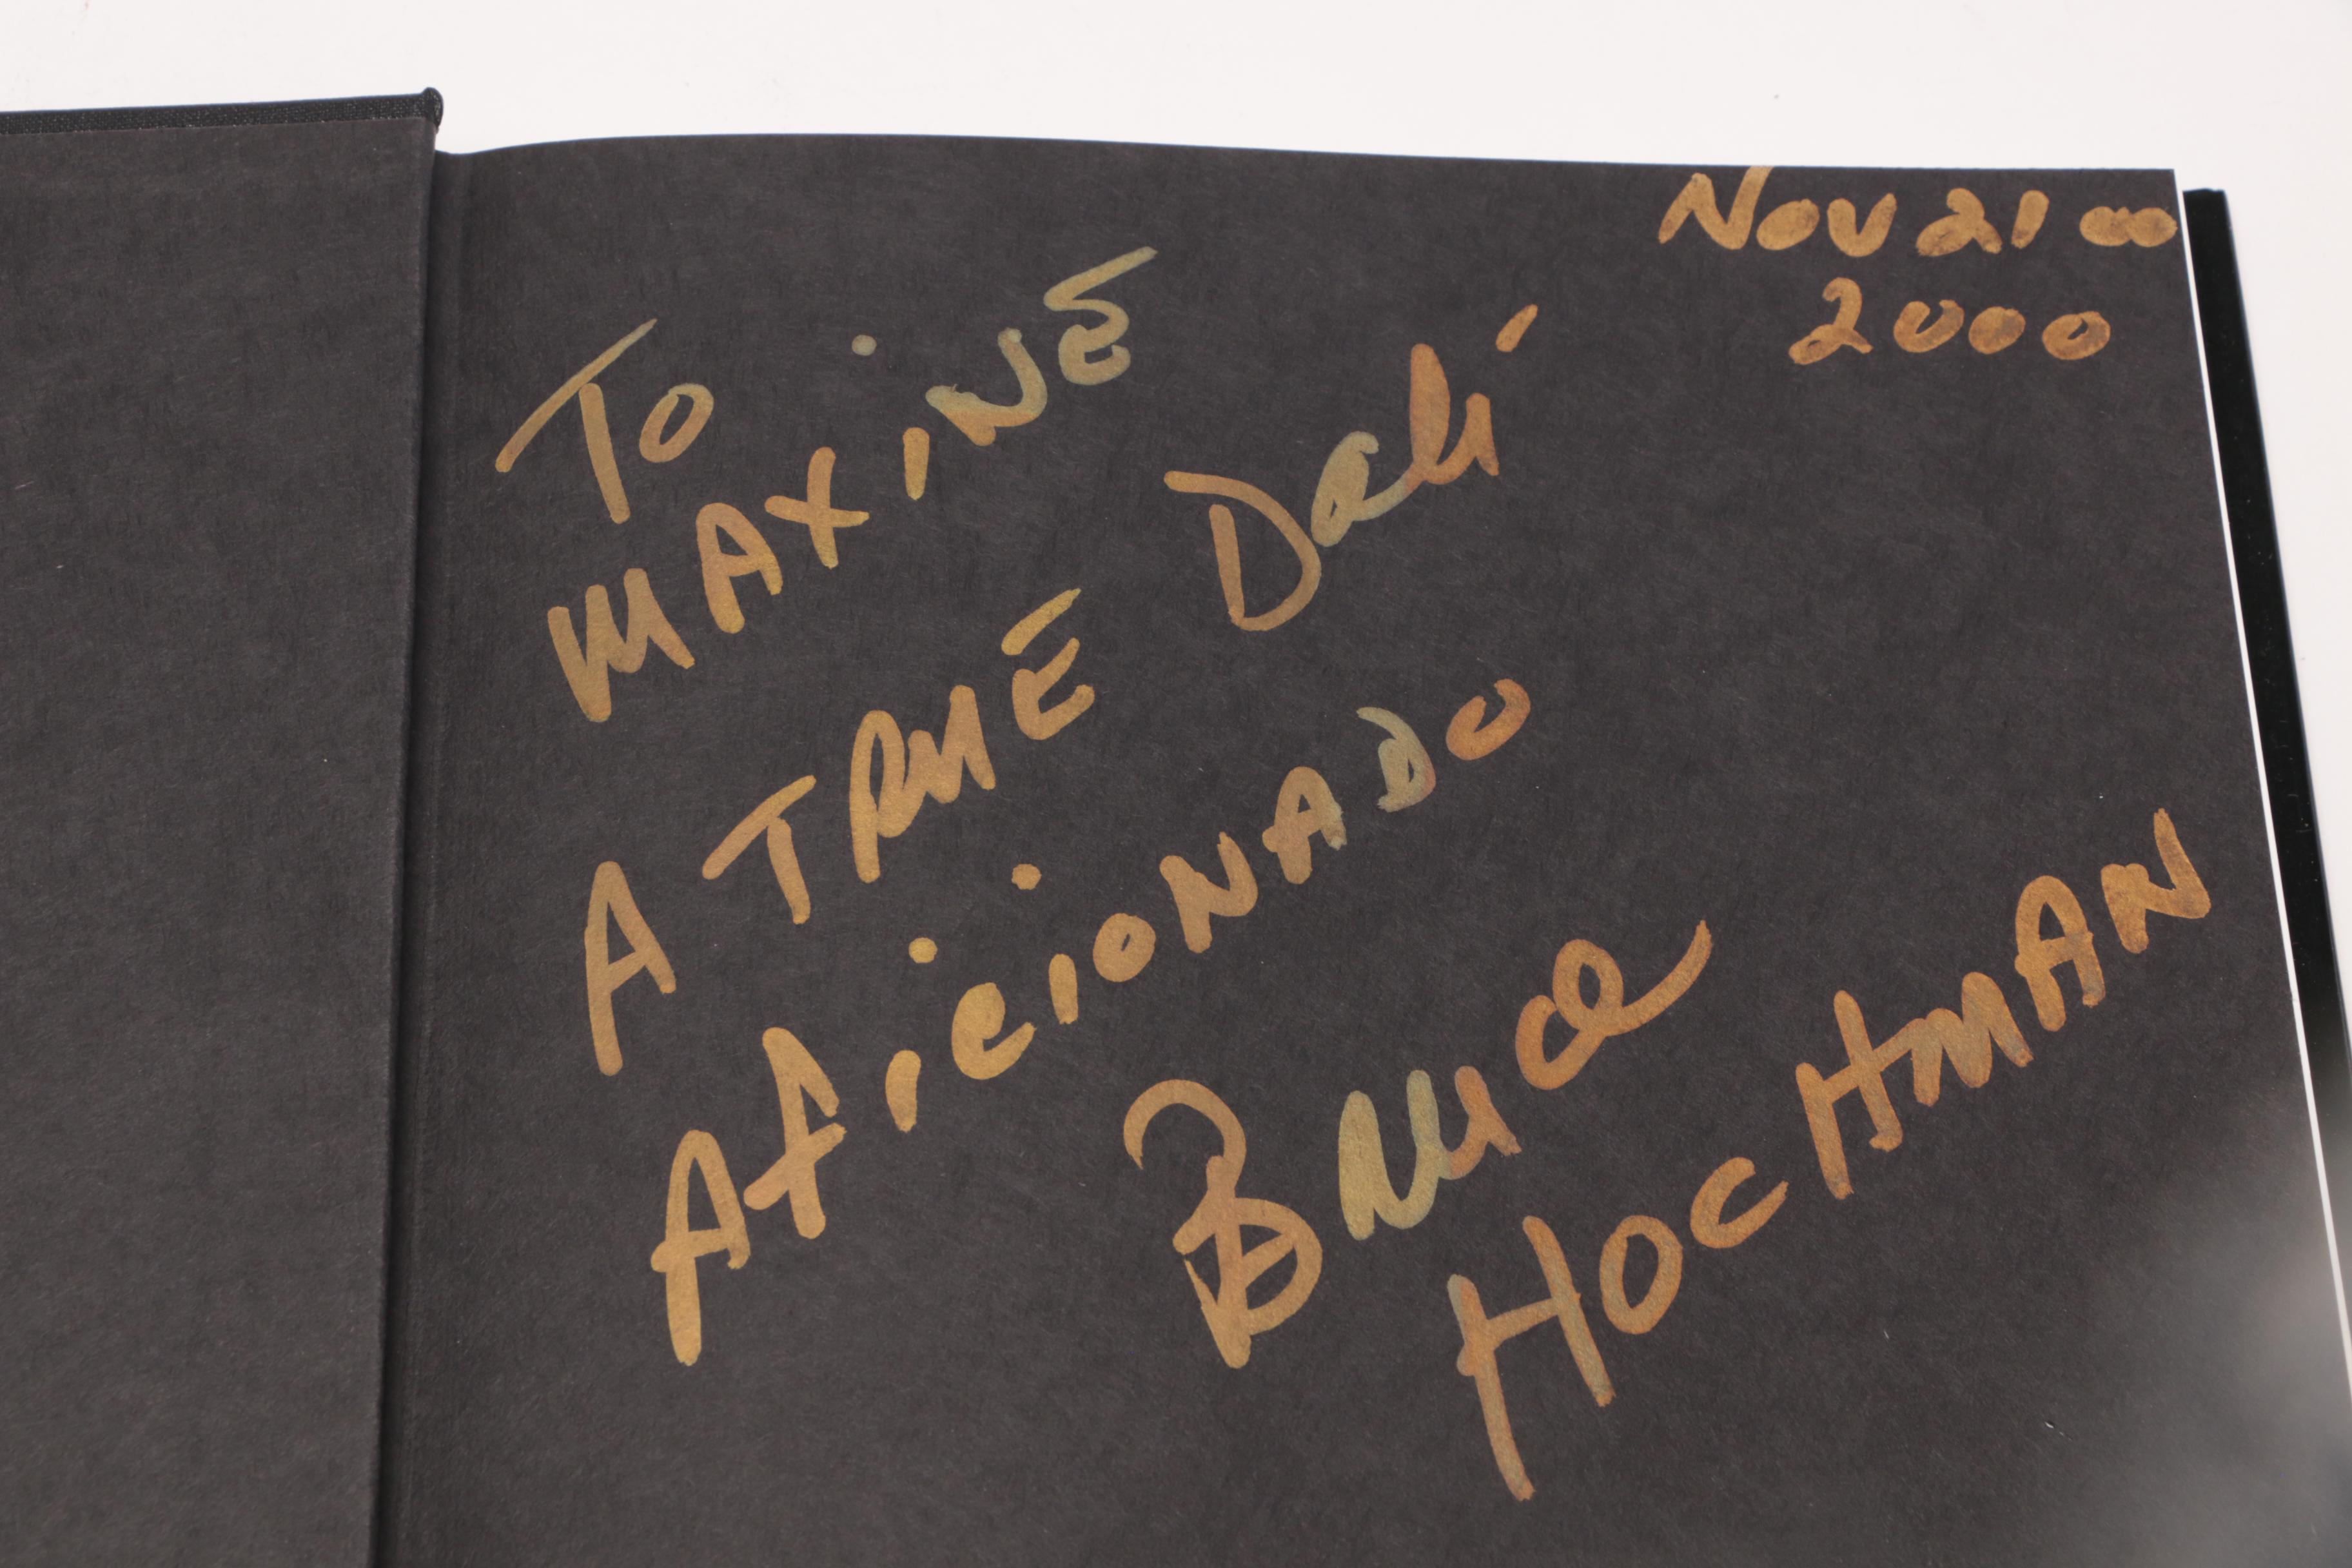 Nov 21 00
2000
To
MAXiNE
A TRUE Dalí
AFiCiONADO
Bruce
HOCHMAN